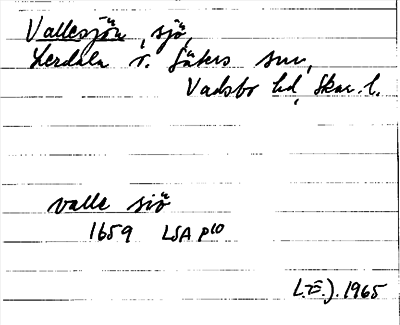 Vallesjön, sjö,
Lerdala o. Säters snr,
Vadsbo hd, Skar. l.
valle siö
1659 LSA P10
1965